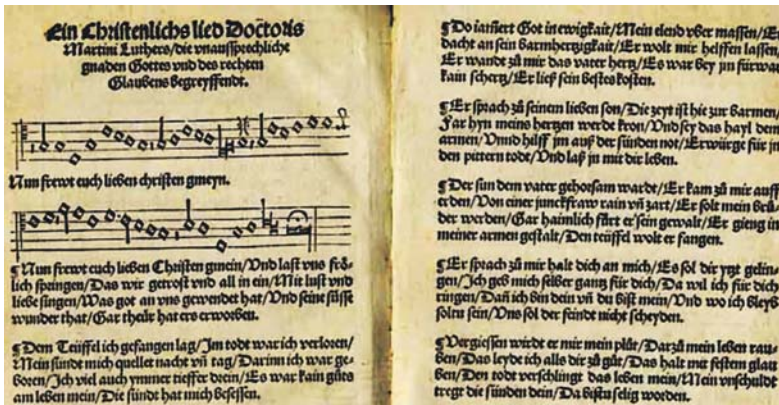 Ein Christenlichs lied Doctoris
Martini Luthers/die vnaussprechliche
gnaden Gottes vnd des rechten
Glaubens begreyffendt.
Nun frewt euch lieben christen gmeyn.
¶Nun frewt euch lieben Christen gmein/Vnd last vns frö-
lich springen/Das wir getrost vnd all in ein/Mit lust vnd
liebe singen/Was got an vns gewendet hat/Vnd seine süsse
wunder that/Gar theür hat ers erworben.
¶Dem Teüffel ich gefangen lag/Im todt war ich verloren/
Mein sündt mich quellet nacht vñ tag/Darinn ich war ge-
boren/Ich viel auch ymmer tieffer drein/Es war kain güts
am leben mein/Die sündt hat mich besessen.
¶Do iamert Got in ewigkait/Mein elend vber massen/Er
dacht an sein barmhertzigkait/Er wolt mir helffen lassen/
Er wandt zů mir das vater hertz/Es war bey jm fürwar
kain schertz/Er ließ sein bestes kosten.
¶Er sprach zů seinem lieben son/Die zeyt ist hie zur barmen/
Far hyn meins hertzen werde kron/Vnd sey das hayl dem
armen/Vnnd hilff jm auß der sünden not/Erwürge für jn
den pittern todt/Vnd laß jn mit dir leben.
¶Der sun dem vater gehorsam wardt/Er kam zů mir auff
erden/Von einer junckfraw rain vñ zart/Er solt mein brů-
der werden/Gar haimlich fürt er sein gewalt/Er gieng in
meiner armen gestalt/Den teüffel wolt er fangen.
¶Er sprach zů mir halt dich an mich/Es sol dir yzt gelin-
gen/Ich geb mich selber gantz für dich/Da wil ich für dich
ringen/Dañ ich bin dein vñ du bist mein/Vnd wo ich bleyb
soltu sein/Vns sol der feindt nicht scheyden.
¶Vergiessen wirdt er mir mein plůt/Darzů mein leben rau-
ben/Das leyde ich alls dir zů gůt/Das halt mit festem glau
ben/Den todt verschlingt das leben mein/Mein vnschuldt
tregt die sünden dein/Da bistu selig worden.